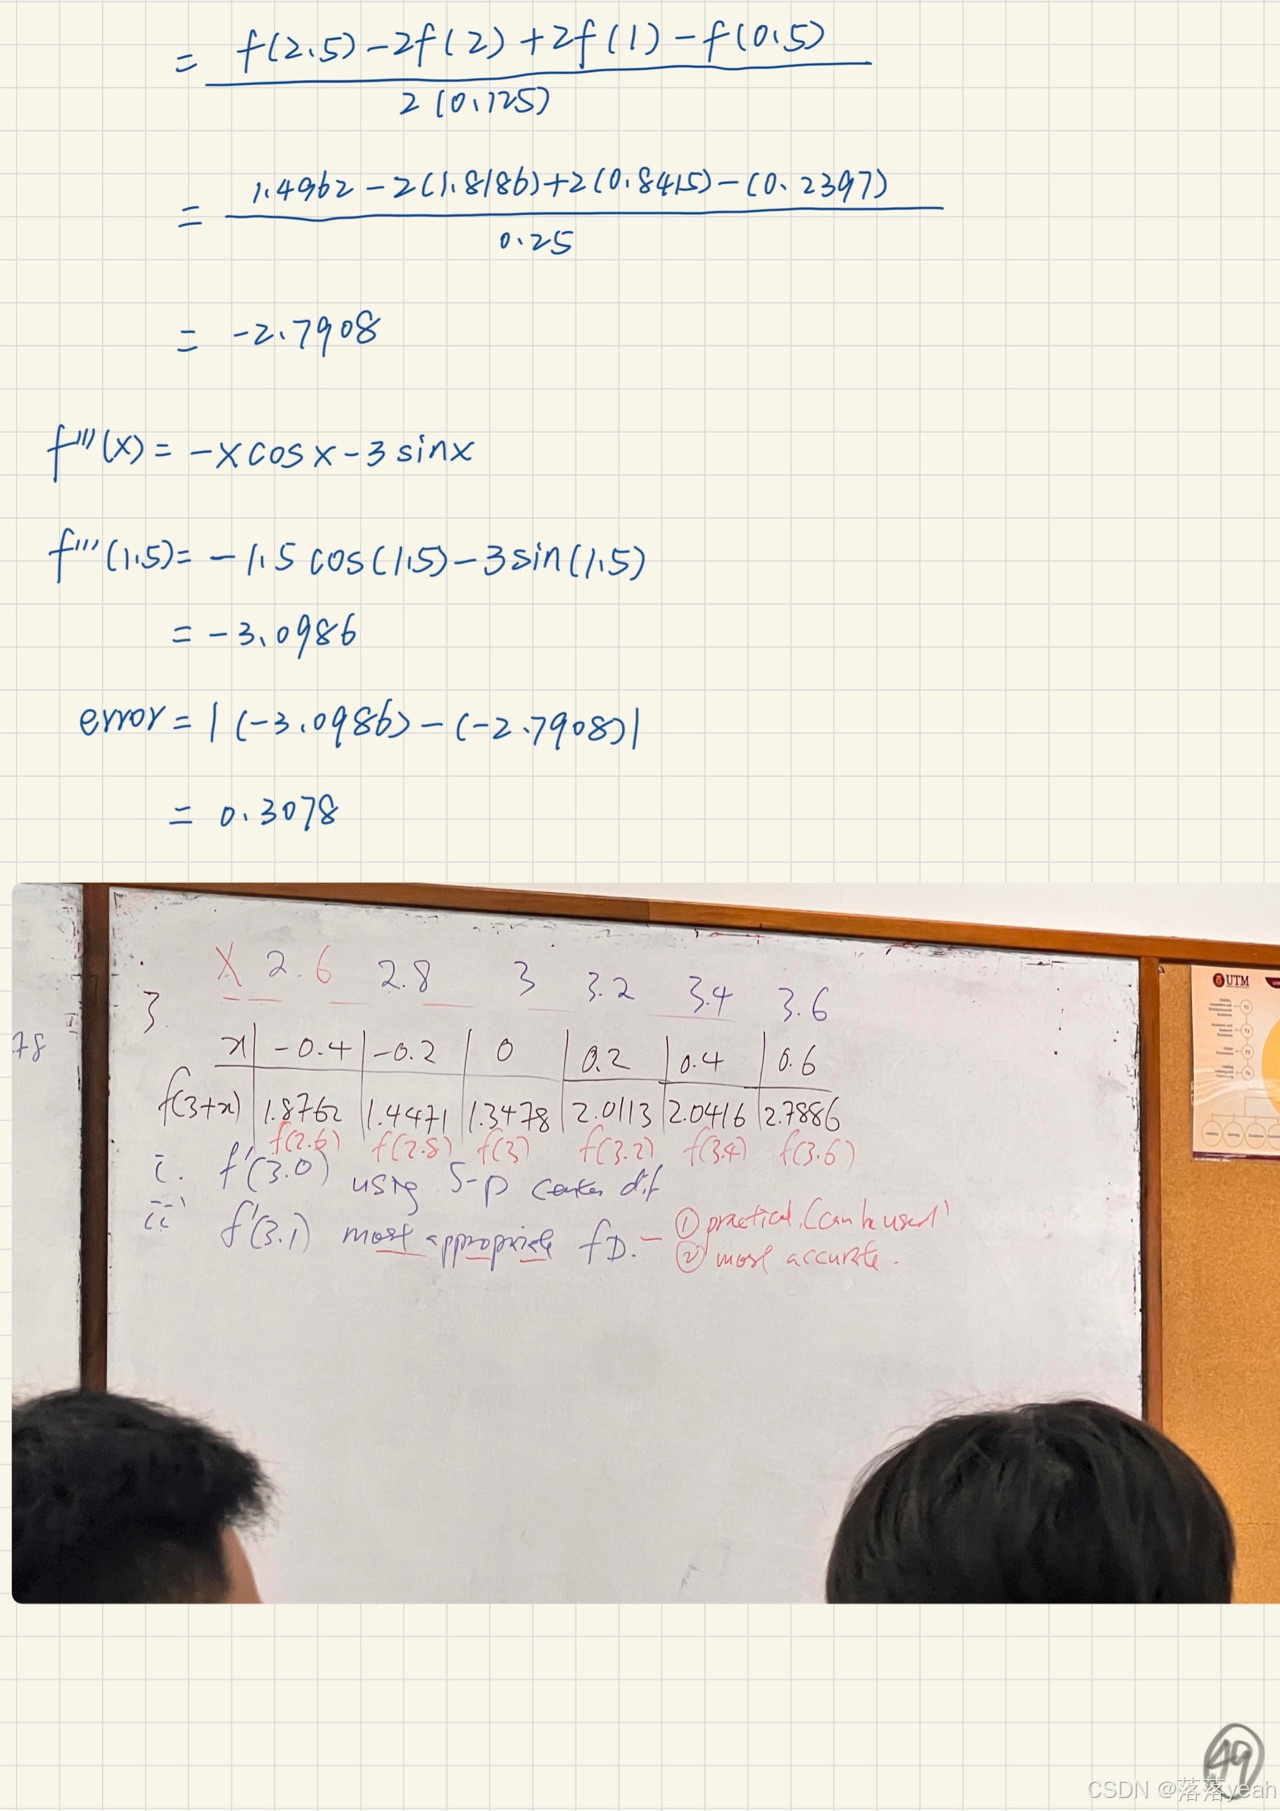 = f(2.5) - 2f(2) + 2f(1) - f(0.5)
2 (0.125)
= 1.4962 - 2(1.8186) + 2(0.8415) - (0.2397)
0.25
= -2.7908
f'''(x) = -x cos x - 3 sin x
f'''(1.5) = -1.5 cos(1.5) - 3 sin(1.5)
= -3.0986
error = |(-3.0986) - (-2.7908)|
= 0.3078
X 2.6 2.8 3 3.2 3.4 3.6
3.
78
x -0.4 -0.2 0 0.2 0.4 0.6
f(3+x) 1.8762 1.4471 1.3478 2.0113 2.0416 2.7886
f(2.6) f(2.8) f(3) f(3.2) f(3.4) f(3.6)
i. f'(3.0) using 5-p center dif
ii f'(3.1) most appropriate FD. - ① practical, (can be used)
② most accurate.
UTM
49
CSDN @落落yeah